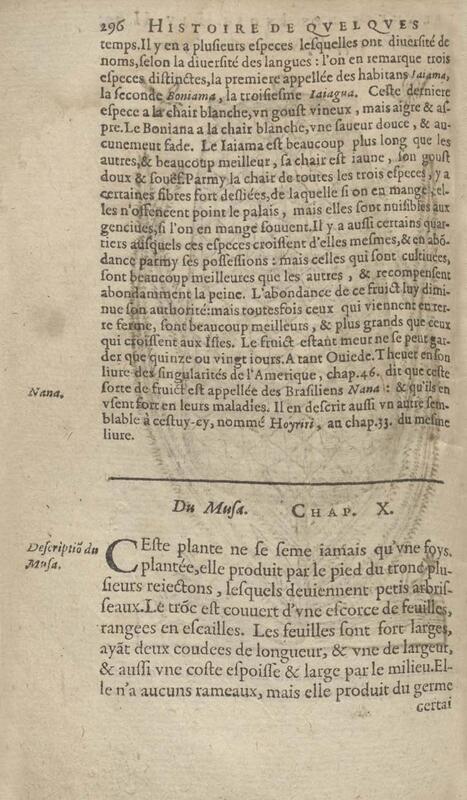 296 HISTOIRE DE QVELQVES
temps.Il y en a plusieurs especes lesquelles ont diuersité de
noms,selon la diuersité des langues : l'on en remarque trois
especes distinctes,la premiere appellée des habitans Iaiama,
la seconde Boniama, la troisiesme Iaiagua. Ceste derniere
espece a la chair blanche,vn goust vineux, mais aigre & as-
pre.Le Boniana a la chair blanche,vne saueur douce, & au-
cunement fade. Le Iaiama est beaucoup plus long que les
autres,& beaucoup meilleur, sa chair est iaune, son goust
doux & souëf.Parmy la chair de toutes les trois especes, y a
certaines fibres fort desliées,de laquelle si on en mange ,el-
les n'offencent point le palais, mais elles sont nuisibles aux
genciues,si l'on en mange souuent.Il y a aussi certains quar-
tiers ausquels ces especes croissent d'elles mesmes,& en abõ-
dance parmy ses possessions : mais celles qui sont cultiuées,
sont beaucoup meilleures que les autres , & recompensent
abondamment la peine. L'abondance de ce fruict luy dimi-
nue son authorité:mais toutesfois ceux qui viennent en ter-
re ferme, sont beaucoup meilleurs , & plus grands que ceux
qui croissent aux Isles. Le fruict estant meur ne se peut gar-
der que quinze ou vingt iours. A tant Ouiede. Theuet en son
liure des singularités de l'Amerique, chap.46. dit que ceste
sorte de fruict est appellée des Brasiliens Nana : & qu'ils en
Nana.
vsent fort en leurs maladies. Il en descrit aussi vn autre sem-
blable à cestuy-cy, nommé Hoyriri, au chap.33. du mesme
liure.
Du Musa. CHAP. X.
Descriptiõ du
Musa.
CEste plante ne se seme iamais qu'vne foys,
plantée,elle produit par le pied du tronc plu-
sieurs reiectons, lesquels deuiennent petis arbris-
seaux.Le trõc est couuert d'vne escorce de feuilles,
rangees en escailles. Les feuilles sont fort larges,
ayãt deux coudees de longueur, & vne de largeur,
& aussi vne coste espoisse & large par le milieu.El-
le n'a aucuns rameaux, mais elle produit du germe
certai